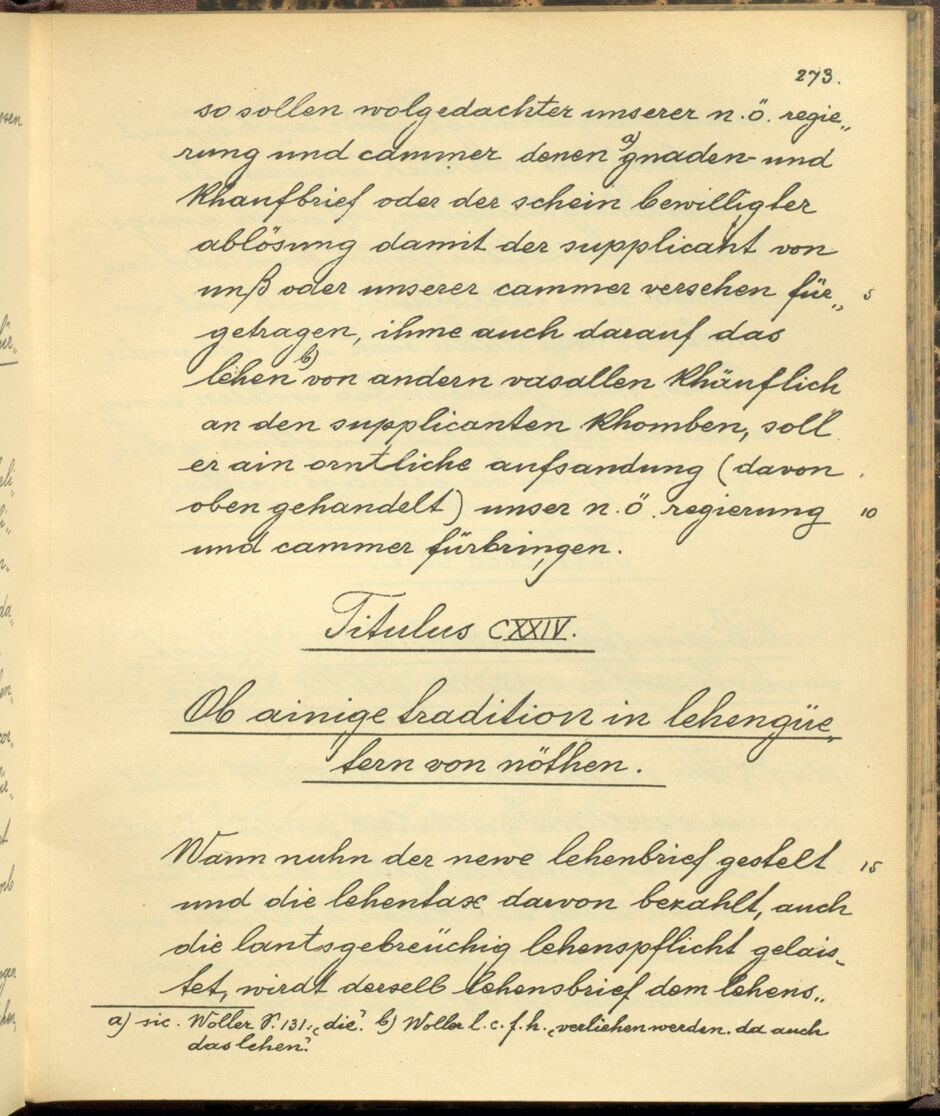 273.
so sollen wolgedachter unserer n.ö. regie„
rung und cammer denen a) gnaden- und
Khaufbrief oder der schein bewilligter
ablösung damit der supplicant von
unß oder unserer cammer versehen für„ 5
getragen, ihme auch darauf das
lehen b) von andern vasallen khäuflich
an den supplicanten khomben, soll
er ain orntliche aufsandung (davon
oben gehandelt) unser n.ö. regierung 10
und cammer fürbringen.
Titulus CXXIV.
Ob ainige tradition in lehengüe„
tern von nöthen.
Wann nuhn der newe lehenbrief gestelt 15
und die lehentax darvon bezahlt, auch
die lantsgebreüchig lehenspflicht gelais„
tet, wirdt derselb lehensbrief dem lehens„
a) sic. Woller S. 131: „die“. b) Woller l.c.f.h. „verliehen werden. da auch
das lehen“.